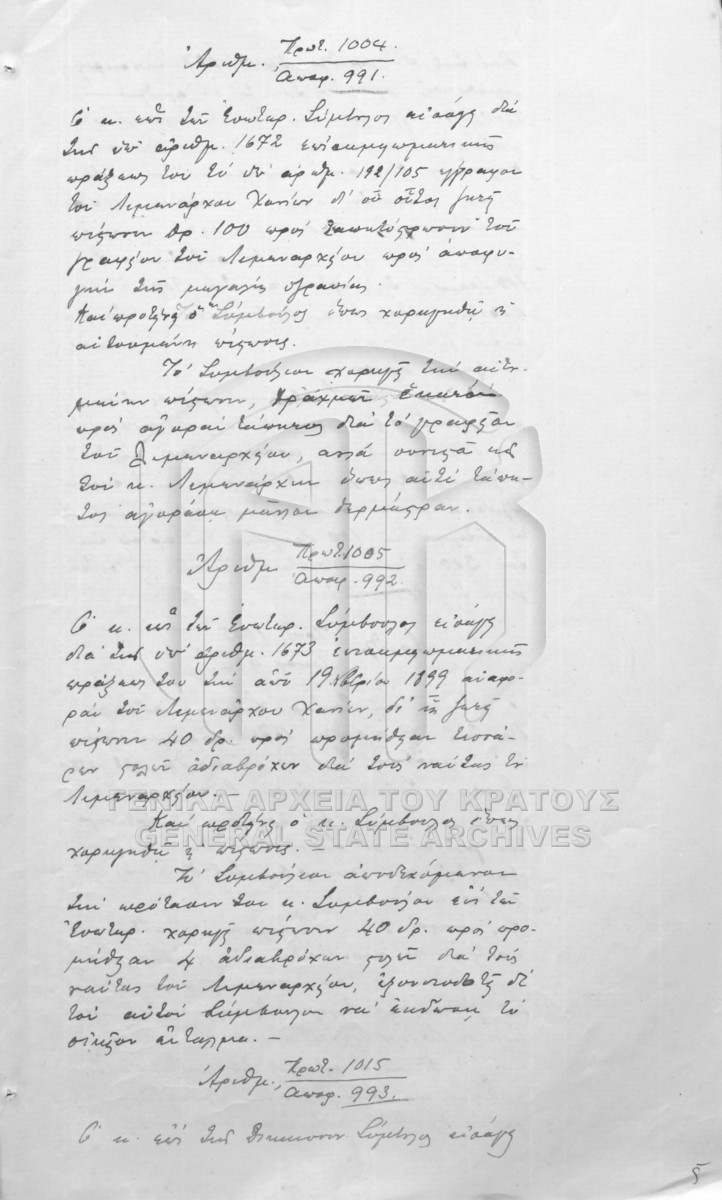 Ἀριθμ. Πρωτ. 1004.
Ἀποφ. 991.
Ὁ κ. ἐπὶ τῶν Ἐσωτερ. Σύμβουλος εἰσάγει διὰ
τῆς ὑπ' ἀριθμ. 1672 ἐπισημειωματικῆς
πράξεώς του τὸ ὑπ' ἀριθμ. 192/105 ἔγγραφον
τοῦ Λιμενάρχου Χανίων δι' οὗ οὗτος ζητεῖ
πίστωσιν δρ. 100 πρὸς ταπητόστρωσιν τοῦ
γραφείου τοῦ Λιμεναρχείου πρὸς ἀποφυ-
γὴν τῆς μεγάλης ὑγρασίας.
Καὶ προτείνει ὁ κ. Σύμβουλος ὅπως χορηγηθῇ ἡ
αἰτουμένη πίστωσις.
Τὸ Συμβούλιον χορηγεῖ τὴν αἰτου-
μένην πίστωσιν, δραχμῶν ἑκατὸν
πρὸς ἀγορὰν τάπητος διὰ τὸ γραφεῖον
τοῦ Λιμεναρχείου, ἀλλὰ συνιστᾷ εἰς
τὸν κ. Λιμενάρχην ὅπως ἀντὶ τάπη-
τος ἀγοράσῃ μᾶλλον θερμάστραν.
Ἀριθμ. Πρωτ. 1005
Ἀποφ. 992
Ὁ κ. ἐπὶ τῶν Ἐσωτερ. Σύμβουλος εἰσάγει
διὰ τῆς ὑπ' ἀριθμ. 1673 ἐπισημειωματικῆς
πράξεώς του τὴν ἀπὸ 19 9βρίου 1899 ἀναφο-
ρὰν τοῦ Λιμενάρχου Χανίων, δι' ἧς ζητεῖ
πίστωσιν 40 δρ. πρὸς προμήθειαν τεσσά-
ρων στολῶν ἀδιαβρόχων διὰ τοὺς ναύτας τοῦ
Λιμεναρχείου. –
Καὶ προτείνει ὁ κ. Σύμβουλος ὅπως
χορηγηθῇ ἡ πίστωσις. –
Τὸ Συμβούλιον ἀποδεχόμενον
τὴν πρότασιν τοῦ κ. Συμβούλου ἐπὶ τῶν
Ἐσωτερ. χορηγεῖ πίστωσιν 40 δρ. πρὸς προ-
μήθειαν 4 ἀδιαβρόχων στολῶν διὰ τοὺς
ναύτας τοῦ Λιμεναρχείου, ἐξουσιοδοτεῖ δὲ
τὸν αὐτὸν Σύμβουλον νὰ ἐκδώσῃ τὸ
οἰκεῖον ἔνταλμα. –
Ἀριθμ. Πρωτ. 1015
Ἀποφ. 993.
Ὁ κ. ἐπὶ τῆς Δικαιοσύν. Σύμβουλος εἰσάγει
5
ΓΕΝΙΚΑ ΑΡΧΕΙΑ ΤΟΥ ΚΡΑΤΟΥΣ
GENERAL STATE ARCHIVES